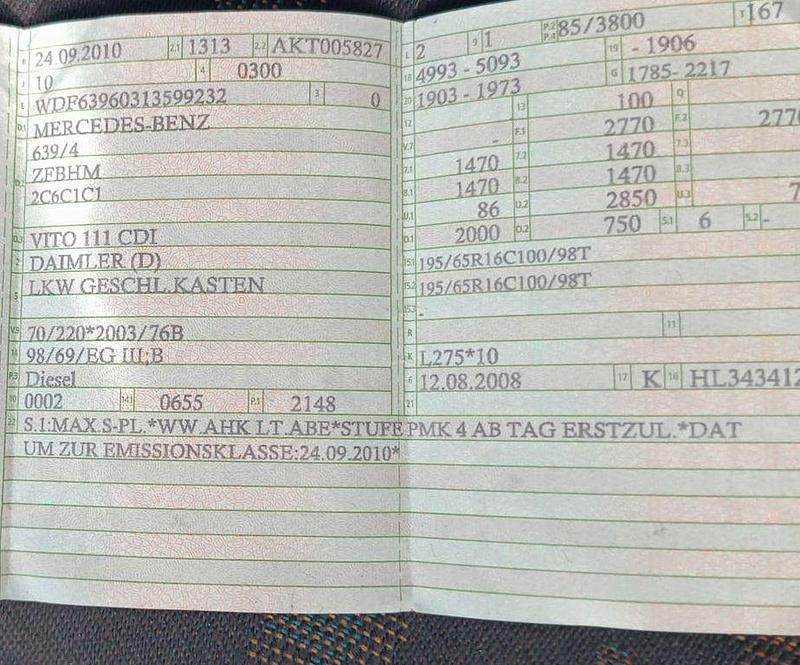 B 24.09.2010 2.1 1313 2.2 AKT005827
J 10 4 0300
E WDF63960313599232 3 0
D.1 MERCEDES-BENZ
639/4
D.2 ZFBHM
2C6C1C1
D.3 VITO 111 CDI
2 DAIMLER (D)
5 LKW GESCHL.KASTEN
V.9 70/220*2003/76B
14 98/69/EG III;B
P.3 Diesel
10 0002 14.1 0655 P.1 2148
L 2 9 1 P.2 P.4 85/3800 T 167
18 4993 - 5093 19 - 1906
20 1903 - 1973 G 1785- 2217
12 13 100 Q
V.7 - F.1 2770 F.2 277
7.1 1470 7.2 1470 7.3
8.1 1470 8.2 1470 8.3
U.1 86 U.2 2850 U.3 7
O.1 2000 O.2 750 S.1 6 S.2 -
15.1 195/65R16C100/98T
15.2 195/65R16C100/98T
15.3 -
R 11
K L275*10
6 12.08.2008 17 K 16 HL343412
21
22 S.1:MAX.S-PL.*WW.AHK LT.ABE*STUFE PMK 4 AB TAG ERSTZUL.*DAT
UM ZUR EMISSIONSKLASSE:24.09.2010*